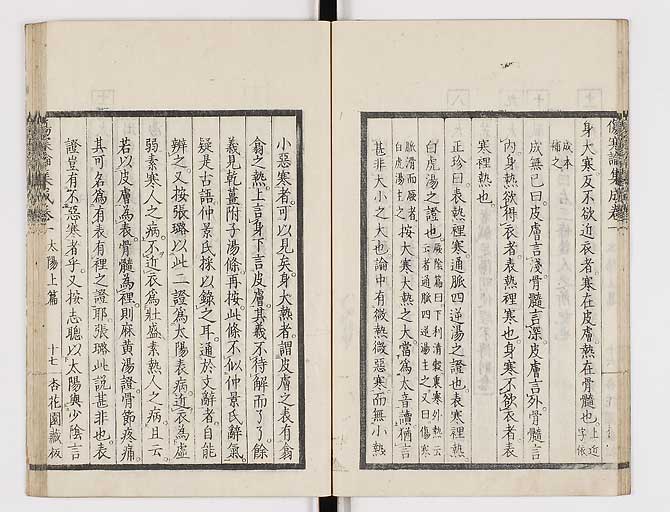 傷寒論集成卷一
身大寒反不欲近衣者寒在皮膚熱在骨髓也上近字依
成本補之
成無已曰皮膚言淺骨髓言深皮膚言外骨髓言
內身熱欲得衣者表熱裡寒也身寒不飲衣者表
寒裡熱也
正珍曰表熱裡寒通脈四逆湯之證也表寒裡熱
白虎湯之證也厥陰篇曰下利清穀裏寒外熱云
云者通脈四逆湯主之又曰傷寒
脈滑而厥者
白虎湯主之按大寒大熱之大當爲太音讀猶言
甚非大小之大也論中有微熱微惡寒而無小熱
小惡寒者可以見矣身大熱者謂皮膚之表有翕
翕之熱上言身下言皮膚其義不待解而了了餘
義見乾薑附子湯條再按此條不似仲景氏辭氣
疑是古語仲景氏採以錄之耳通於文辭者自能
辨之又按張璐以此二證爲太陽表病近衣爲虛
弱素寒人之病不近衣爲壯盛素熱人之病且云
若以皮膚爲表骨髓爲裡則麻黄湯證骨節疼痛
其可名爲有表有裡之證耶張璐此說甚非也表
證豈有不惡寒者乎又按志聰以太陽與少陰言
傷寒論集成卷一 太陽上篇 十七 杏花園藏板